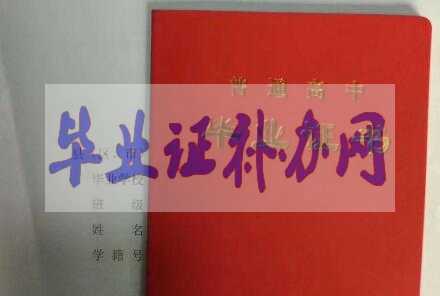 普通高中
毕业证书
毕业证补办网
县、区、市
毕业学校
班 级
姓 名
学籍号